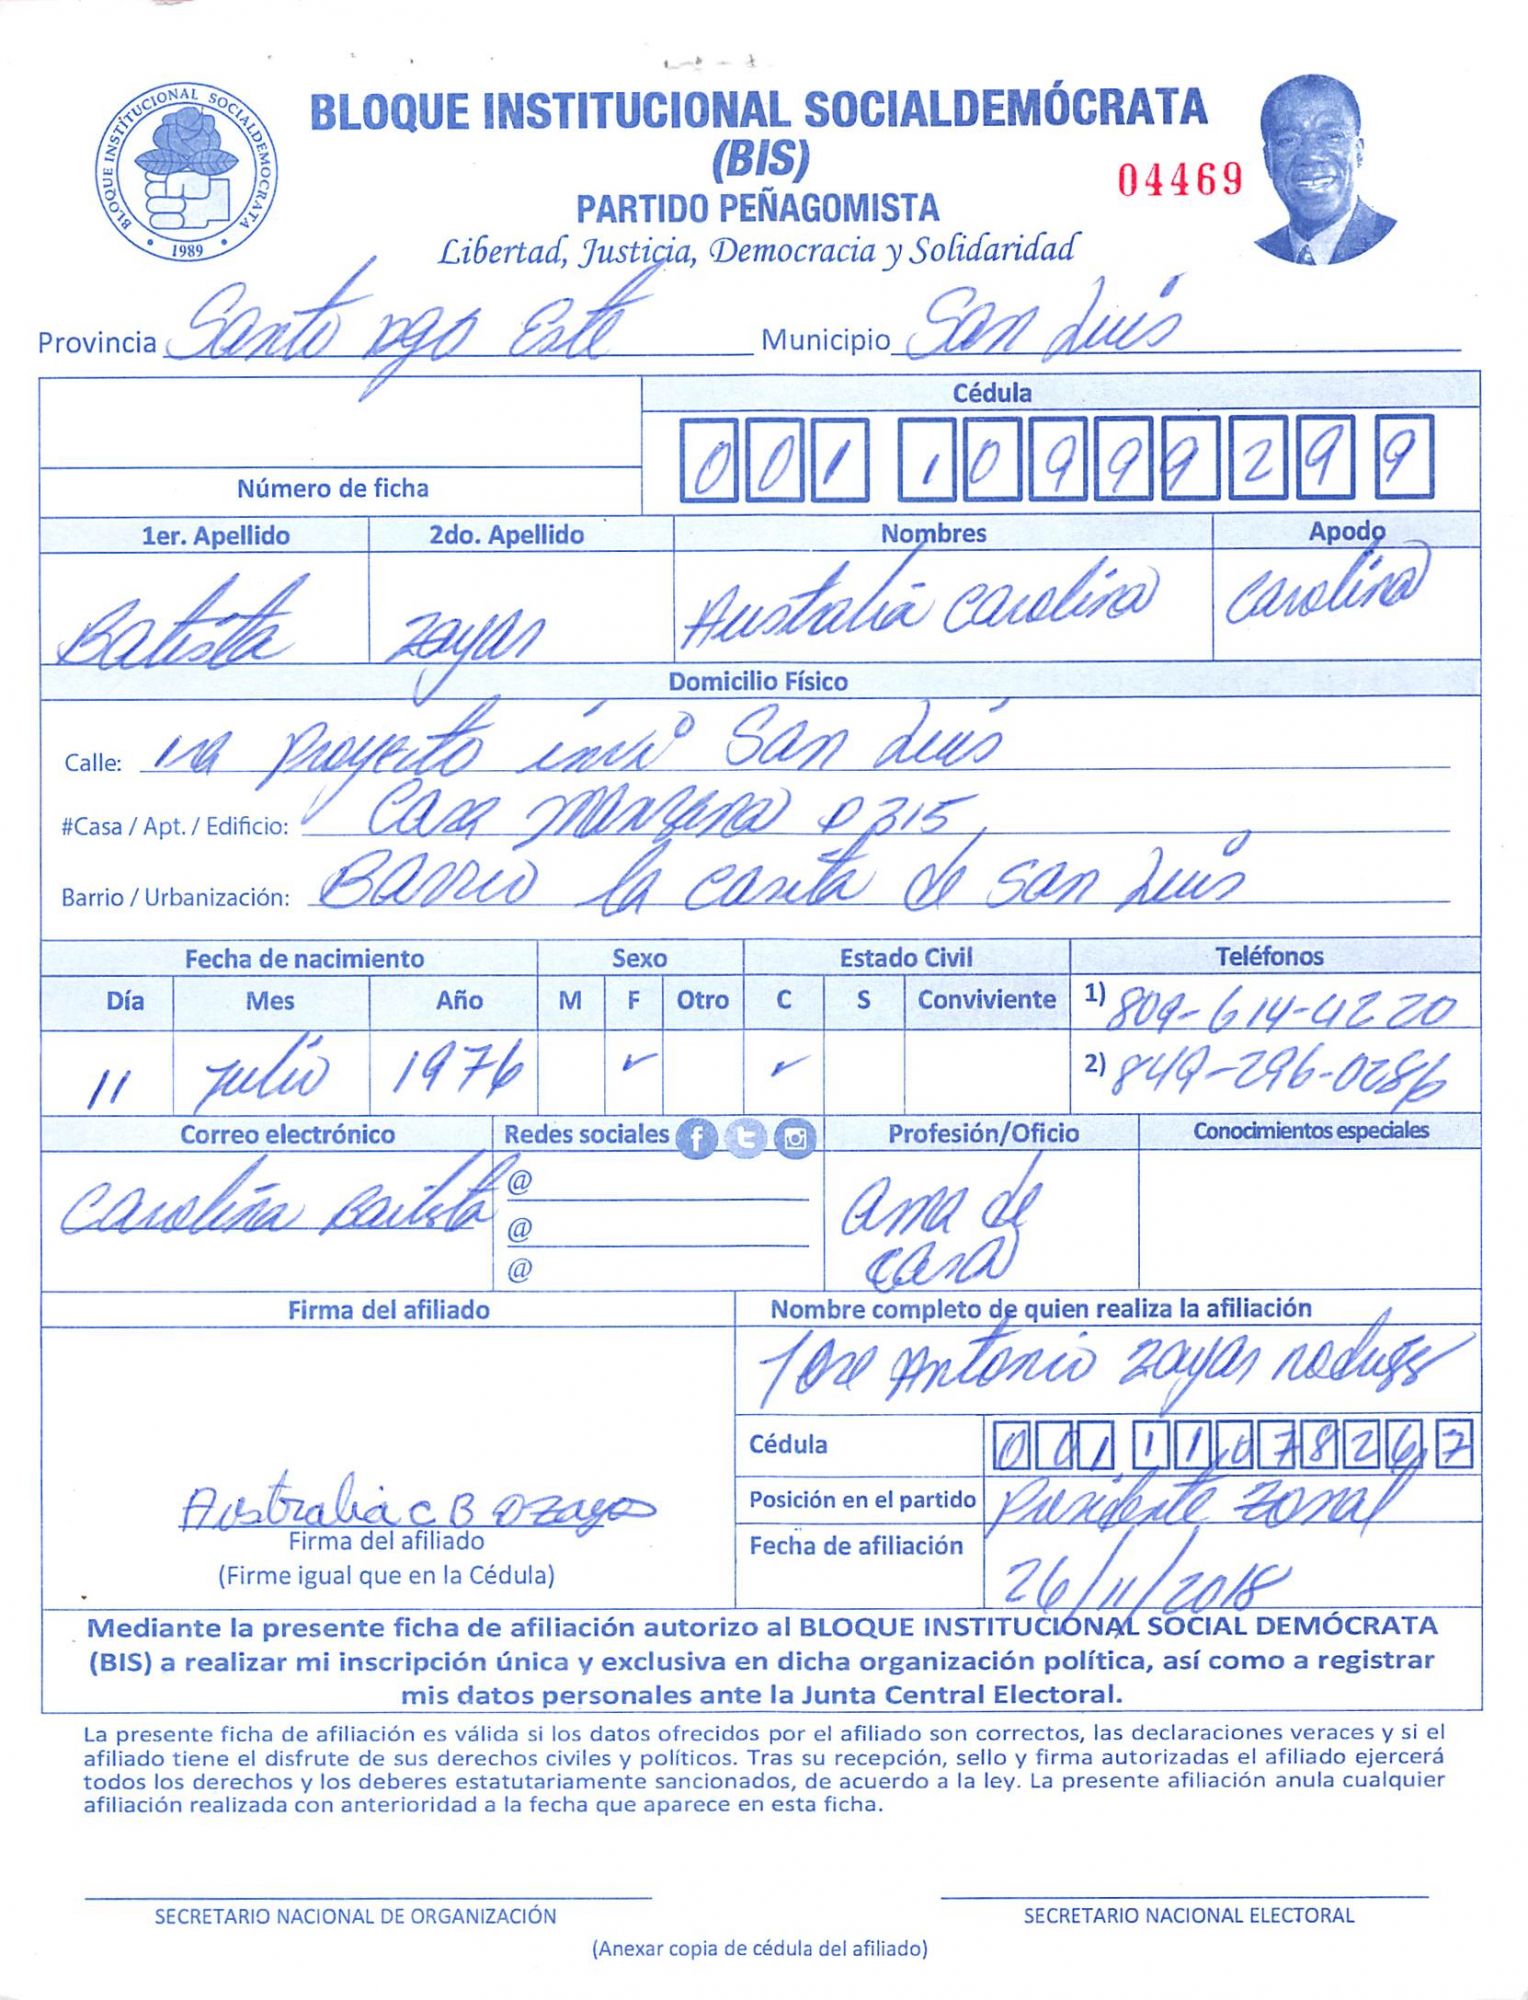 BLOQUE INSTITUCIONAL SOCIALDEMÓCRATA
BLOQUE INSTITUCIONAL SOCIALDEMÓCRATA
1989
(BIS)
04469
PARTIDO PEÑAGOMISTA
Libertad, Justicia, Democracia y Solidaridad
Provincia Santo Dgo Este Municipio San Luis
Cédula
001 1099929 9
Número de ficha
1er. Apellido 2do. Apellido Nombres Apodo
Batista Zayas Australia Carolina Carolina
Domicilio Físico
Calle: 1ra Proyecto invi San Luis
#Casa / Apt. / Edificio: Casa Manzana 315
Barrio / Urbanización: Barrio la Casita de San Luis
Fecha de nacimiento Sexo Estado Civil Teléfonos
Día Mes Año M F Otro C S Conviviente 1) 809-614-4220
11 Julio 1976 ✓ ✓ 2) 849-296-0286
Correo electrónico Redes sociales Profesión/Oficio Conocimientos especiales
Carolina Batista @ Ama de
@ Casa
@
Firma del afiliado Nombre completo de quien realiza la afiliación
Jose Antonio Zayas
Cédula 001 1107826 7
Australia C B D Zayas
Posición en el partido Presidente Zonal
Firma del afiliado
Fecha de afiliación 26/11/2018
(Firme igual que en la Cédula)
Mediante la presente ficha de afiliación autorizo al BLOQUE INSTITUCIONAL SOCIAL DEMÓCRATA
(BIS) a realizar mi inscripción única y exclusiva en dicha organización política, así como a registrar
mis datos personales ante la Junta Central Electoral.
La presente ficha de afiliación es válida si los datos ofrecidos por el afiliado son correctos, las declaraciones veraces y si el
afiliado tiene el disfrute de sus derechos civiles y políticos. Tras su recepción, sello y firma autorizadas el afiliado ejercerá
todos los derechos y los deberes estatutariamente sancionados, de acuerdo a la ley. La presente afiliación anula cualquier
afiliación realizada con anterioridad a la fecha que aparece en esta ficha.
SECRETARIO NACIONAL DE ORGANIZACIÓN SECRETARIO NACIONAL ELECTORAL
(Anexar copia de cédula del afiliado)